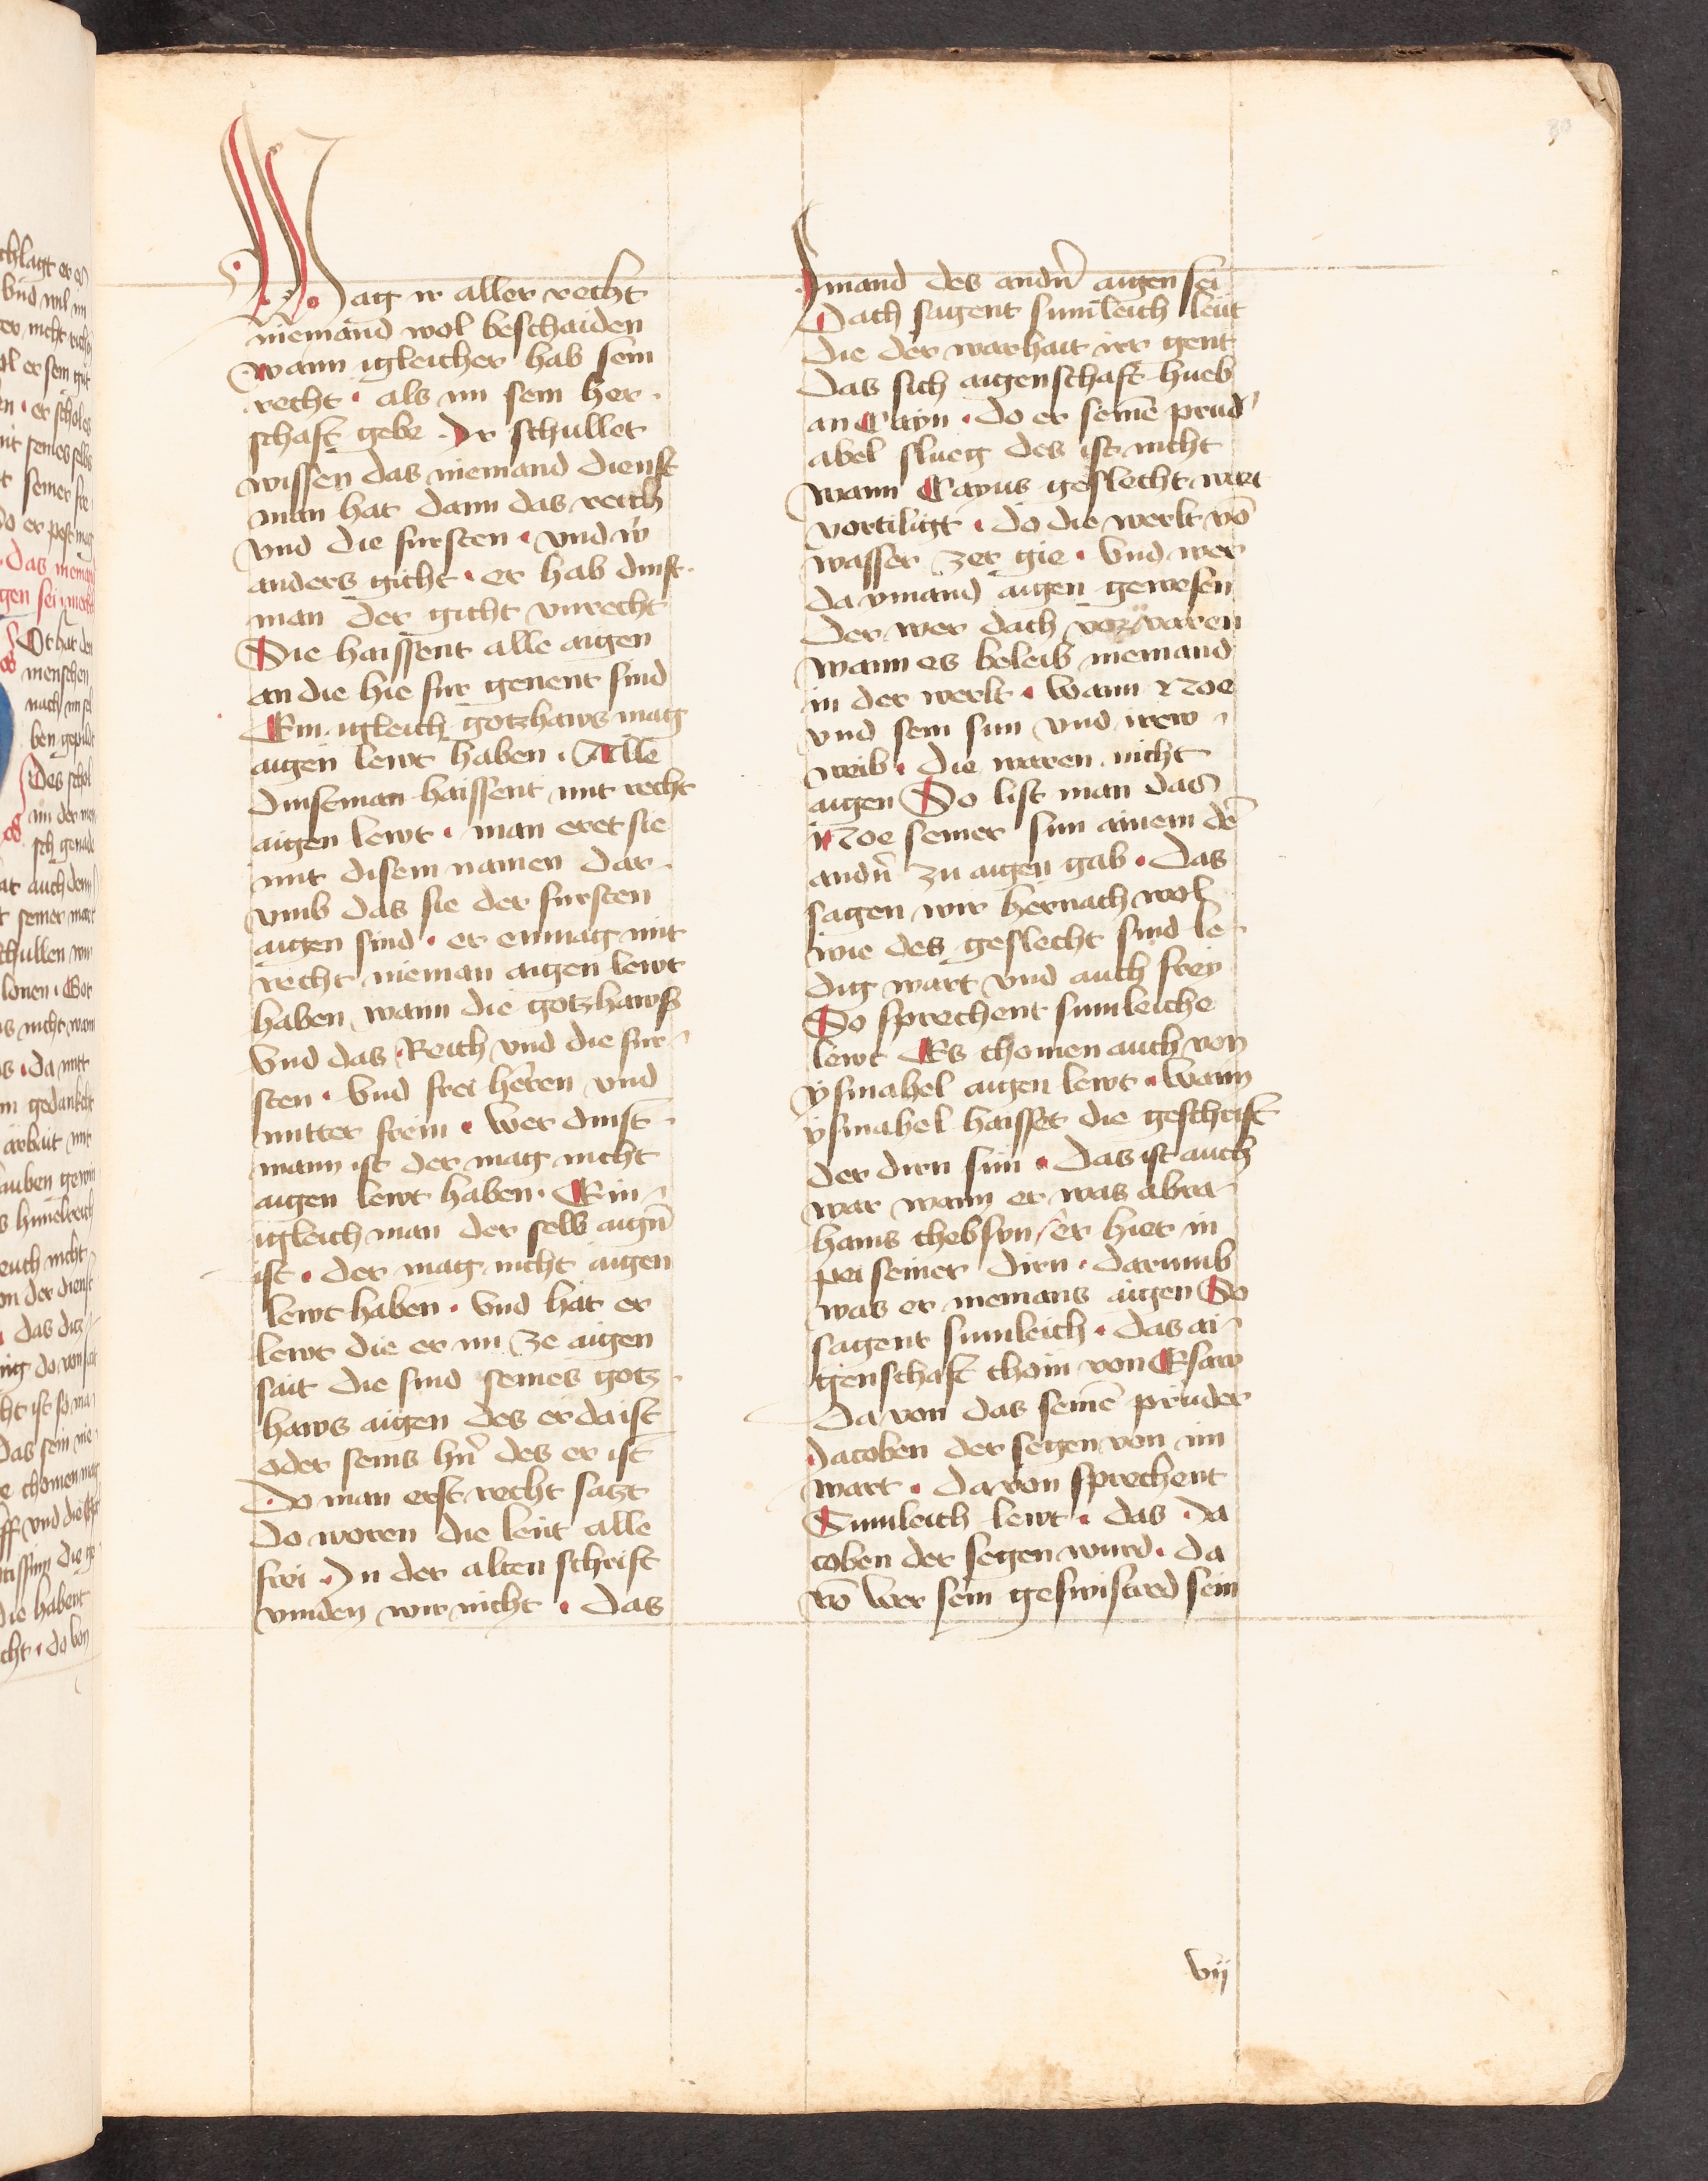 Mag ir aller recht
niemand wol beschaiden
wann igleicher hab sein
recht · als im sein her-
schaft gebe · Ir schullet
wissen das niemand dienst
man hat dann das reich
vnd die fursten · vnd w̄
anders gicht · er hab dinst-
man der gicht vnrecht
Die haissent alle aigen
an die hie fur genent sind
Ein igleich gotzhaws mag
aigen lewt haben · Alle
dinstman haissent mit recht
aigen lewt · man eret sie
mit disem namen dar-
vmb das sie der fursten
aigen sind · er enmag mit
recht nieman aigen lewt
haben wann die gotzhaws
Vnd das Reich vnd die fur-
sten · Vnd frei herren vnd
mitter frein · Wer dinst-
mann ist der mag nicht
aigen lewt haben · Ein-
igleich man der selb aign̄
ist · der mag nicht aigen
lewt haben · Vnd hat er
lewt die er im ze aigen
sait die sind seines gotz-
haws aigen des er da ist
oder seins hn̄ des er ist
Do man erst recht satzt
do woren die leut alle
frei · In der alten schrift
vinden wir nicht · das
Imand des andn̄ aigen sei
Dach sagent sumleich leut
die der warhait irr gent
Das sich aigenschaft hueb
an Cayn · do er seinē prud'
abel slueg des ist nicht
wann Cayns geslecht wart
vortiligt · do die werlt vō
wasser zer gie · Vnd wer
da ymand aigen gewesen
Der wer dach vorvaren
wann es beleib niemand
in der werlt · Wann Noe
vnd sein sun vnd irew
weib · die waren nicht
aigen So list man das
Noe seiner sun ainem dē
andn̄ zu aigen gab · das
sagen wir hernach wol
wie des geslecht sind le-
dig wart vnd auch frey
So sprechent sumleiche
lewt Es chomen auch von
ysmahel aigen lewt · Wann
ysmahel haisset die geschrift
der dirn sun · Das ist auch
war wann er was abra-
hams chebsun / er hiet in
pei seiner dirn · darumb
was er niemans aigen So
sagent sumleich · das ai-
genschaft chom von Esaw
Da von das seinē pruder
Jacoben der segen von im
wart · da von sprechent
Sumleich lewt · das Ja
coben der segen wurd · da
vō wer sein geswistred sein
vij